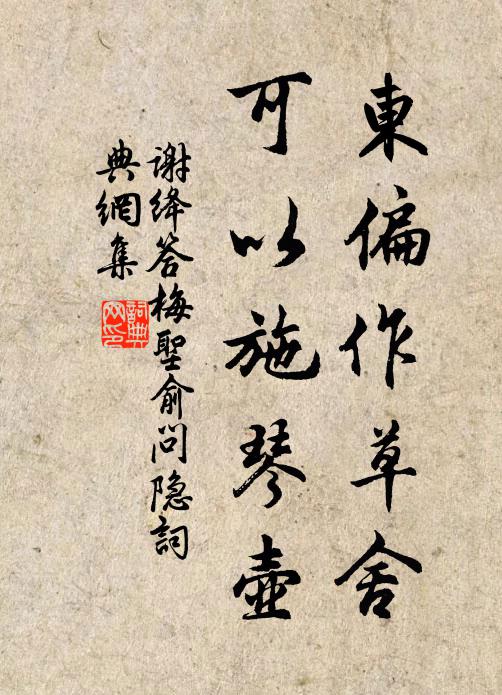 東偏作草舍
可以施琴壺
谢绛答梅聖俞问隐詞
典網集
詞典
网印